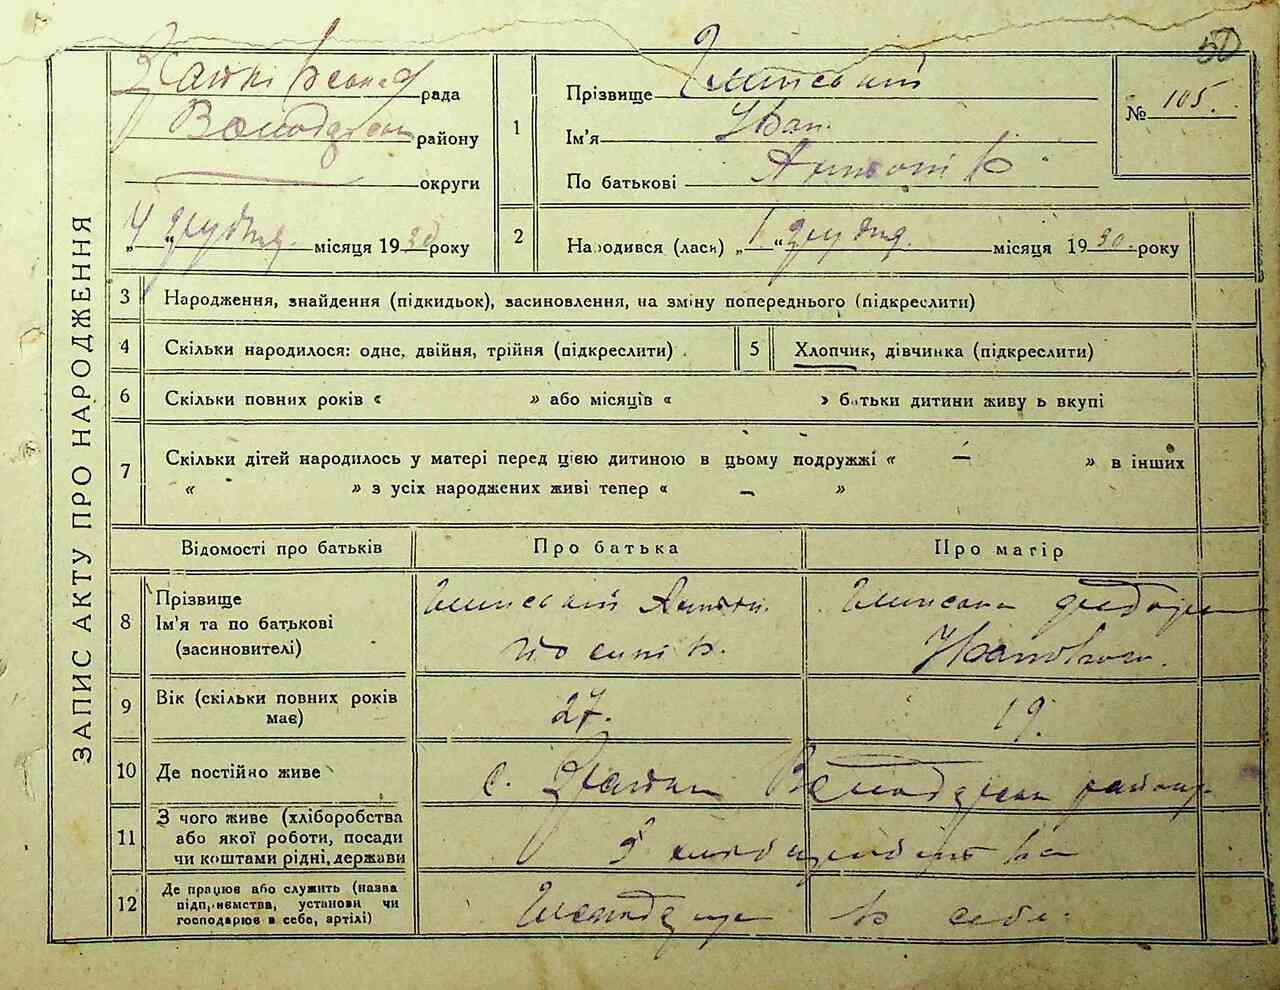 50
рада
району
округи
„4“ грудня місяця 1930 року
1
Прізвище
Ім'я Іван
По батькові Антонів
№ 105.
2
Народився (лась) „1“ грудня місяця 1930 року
ЗАПИС АКТУ ПРО НАРОДЖЕННЯ
3 Народження, знайдення (підкидьок), засиновлення, на зміну попереднього (підкреслити)
4 Скільки народилося: одне, двійня, трійня (підкреслити)
5 Хлопчик, дівчинка (підкреслити)
6 Скільки повних років « » або місяців « » батьки дитини живуть вкупі
7 Скільки дітей народилось у матері перед цією дитиною в цьому подружжі « — » в інших
« » з усіх народжених живі тепер « — »
Відомості про батьків
Про батька
Про матір
8
Прізвище
Ім'я та по батькові
(засиновителі)
Антон
Йосипів.
Іванівна.
9
Вік (скільки повних років
має)
27.
19.
10 Де постійно живе
с. району
11
З чого живе (хліборобства
або якої роботи, посади
чи коштами рідні, держави
З хліборобства
12
Де працює або служить (назва
підприємства, установи чи
господарює в себе, артілі)
в себе.